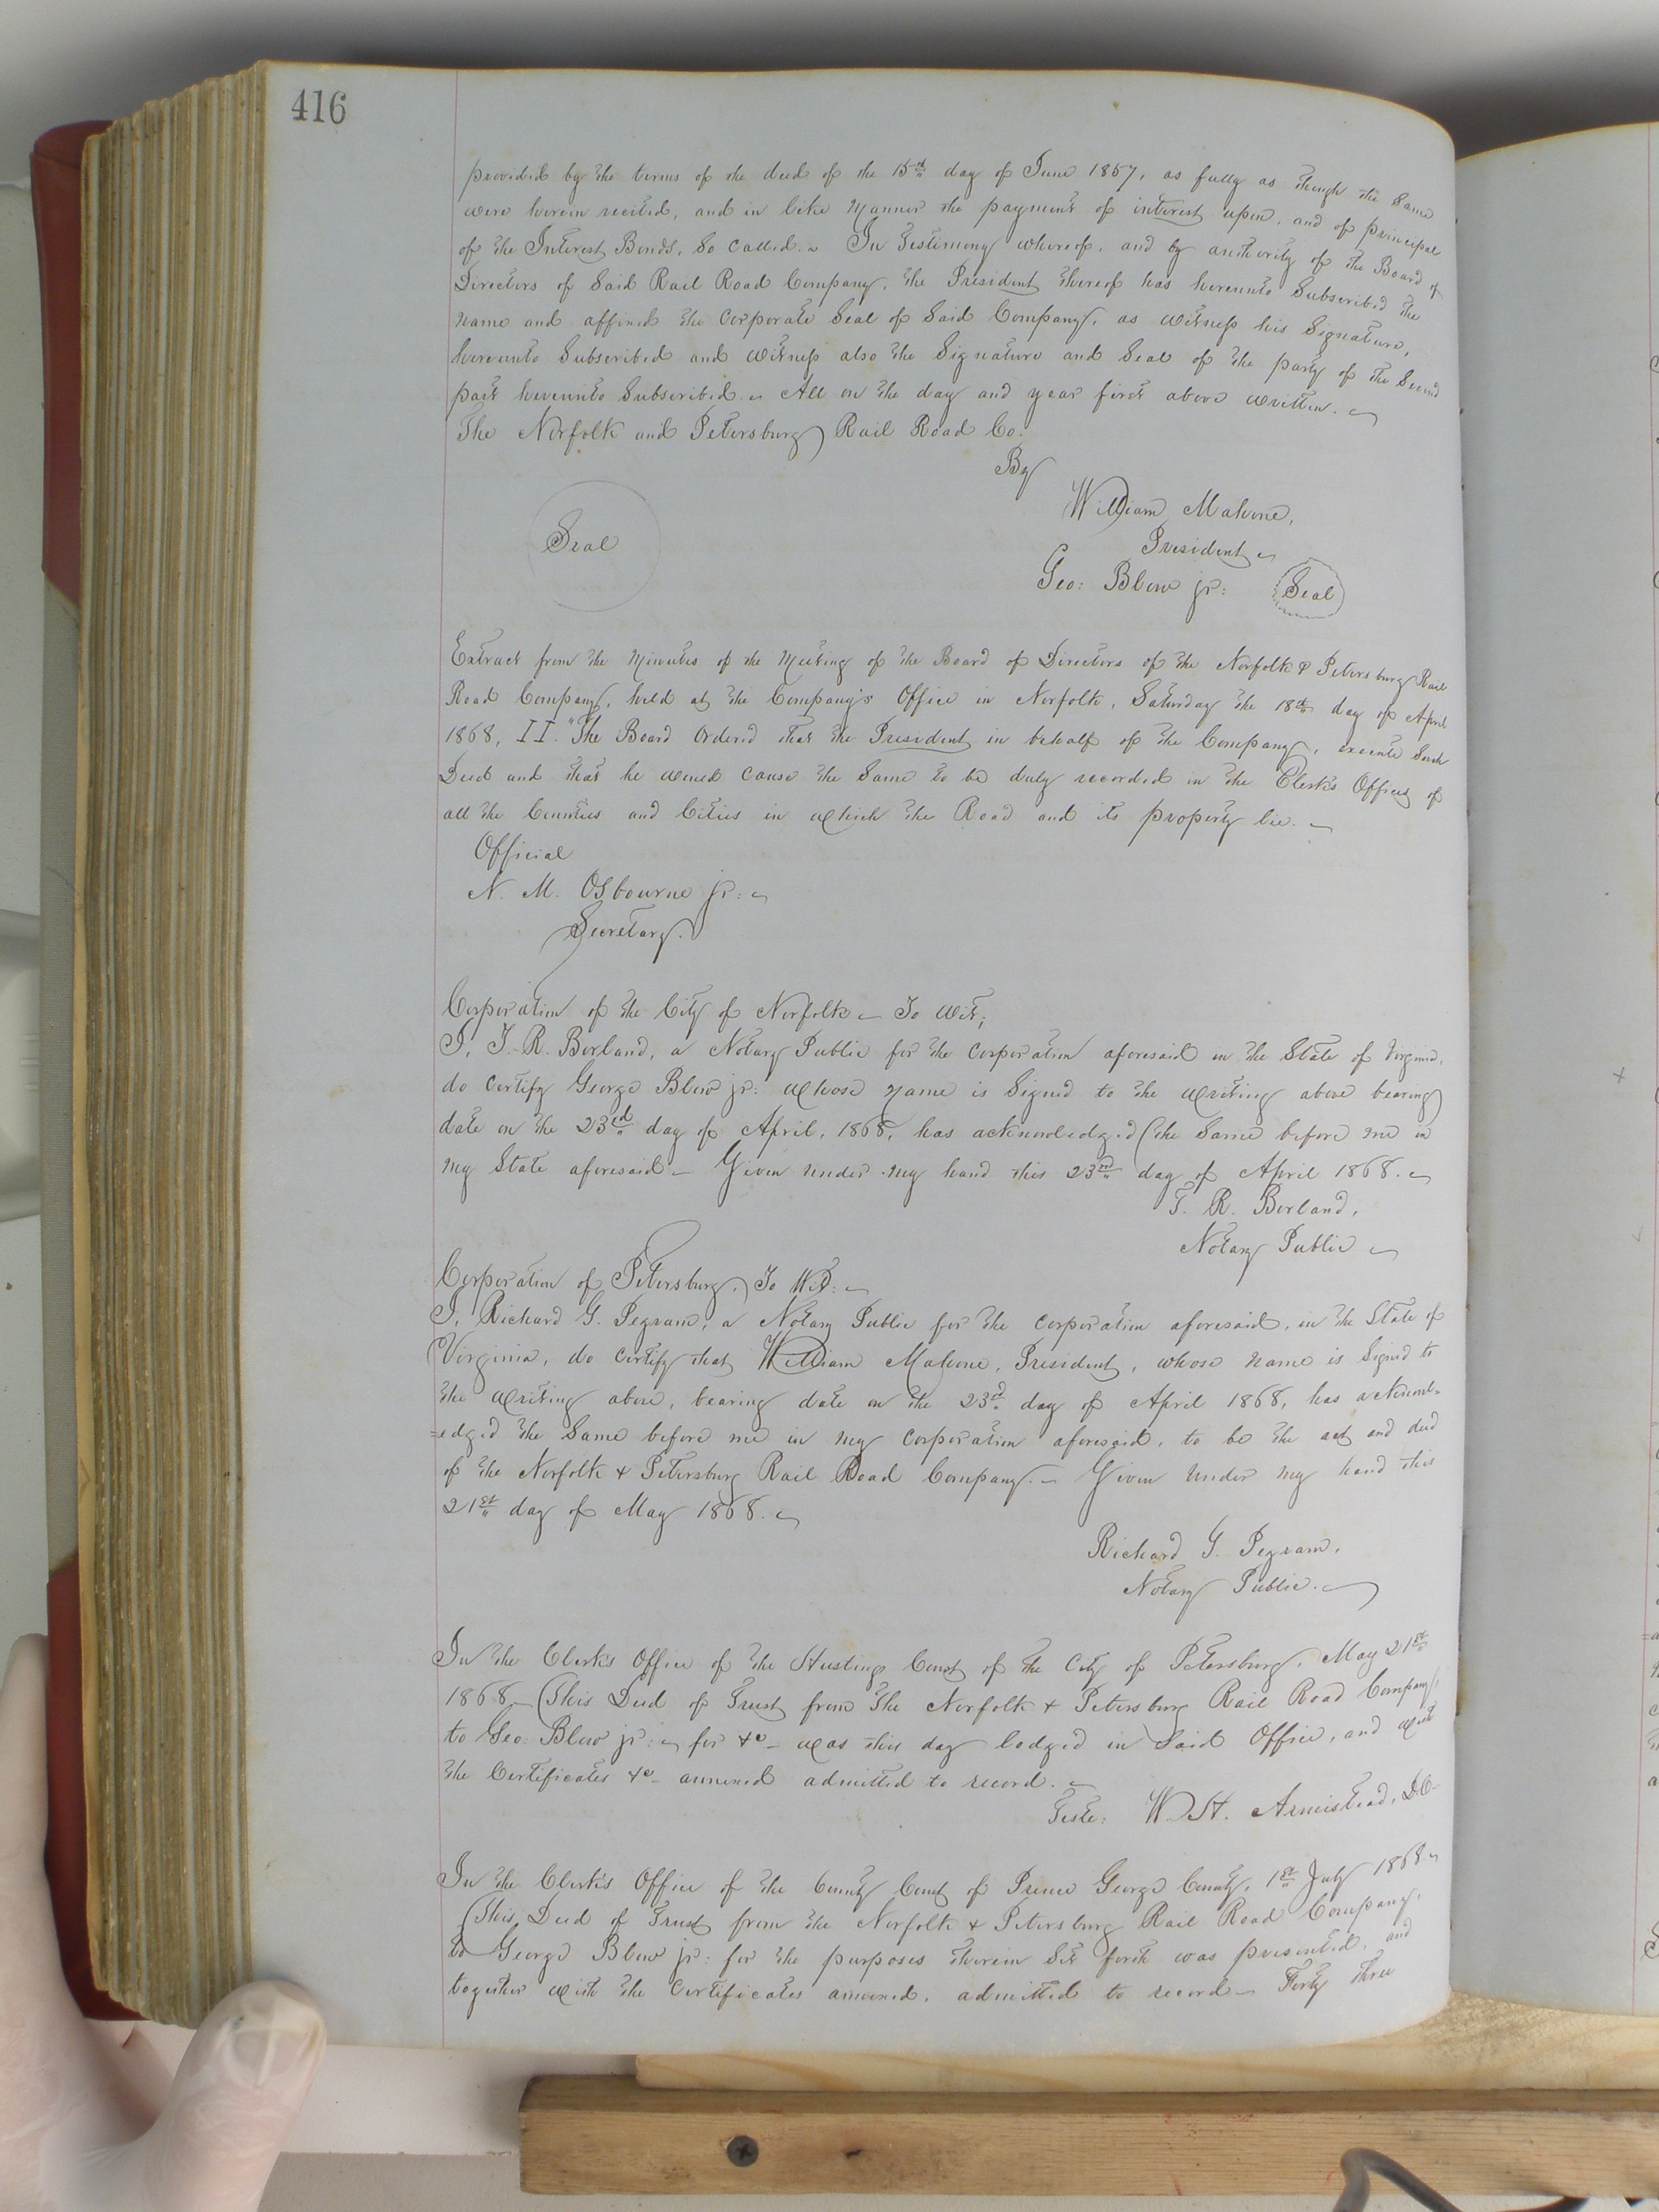 416
provided by the terms of the deed of the 15th day of June 1857, as fully as though the Same
were herein recited, and in like Manner the payment of interest upon, and of principal
of the Interest Bonds, So Called. In Testimony whereof, and by authority of the Board of
Directors of Said Rail Road Company, the President thereof has hereunto Subscribed the
name and affixed the Corporate Seal of Said Company, as witness his Signature,
hereunto Subscribed and witness also the Signature and Seal of the party of the Second
part hereunto Subscribed. All on the day and year first above written.
The Norfolk and Petersburg Rail Road Co.
By
William Mahone,
Seal
President
Geo: Blow jr: Seal
Extract from the Minutes of the Meeting of the Board of Directors of the Norfolk & Petersburg Rail
Road Company, held at the Company's Office in Norfolk, Saturday the 18th day of April
1868, II. "The Board Ordered that the President in behalf of the Company, execute Such
Deed and that he would cause the Same to be duly recorded in the Clerk's Offices of
all the Counties and Cities in which the Road and its property lie.
Official
N. M. Osbourne jr:
Secretary.
Corporation of the City of Norfolk To wit;
I, T. R. Borland, a Notary Public for the Corporation aforesaid in the State of Virginia,
do Certify George Blow jr: whose name is Signed to the writing above bearing
date on the 23rd day of April, 1868, has acknowledged the Same before me in
my State aforesaid – Given under my hand this 23rd day of April 1868.
T. R. Borland,
Notary Public
Corporation of Petersburg, To Wit:
I, Richard G. Pegram, a Notary Public for the Corporation aforesaid, in the State of
Virginia, do Certify that William Mahone, President, whose name is Signed to
the writing above, bearing date on the 23rd day of April 1868, has acknowl=
=edged the Same before me in my Corporation aforesaid, to be the act and deed
of the Norfolk & Petersburg Rail Road Company. – Given under my hand this
21st day of May 1868.
Richard G. Pegram,
Notary Public.
In the Clerk's Office of the Hustings Court of the City of Petersburg, May 21st
1868, – This Deed of Trust from The Norfolk & Petersburg Rail Road Company,
to Geo: Blow jr: for &c – was this day lodged in Said Office, and with
the Certificates &c – annexed admitted to record.
Teste: W. H. Armistead, D.C.
In the Clerk's Office of the County Court of Prince George County, 1st July 1868.
This Deed of Trust from the Norfolk & Petersburg Rail Road Company,
to George Blow jr: for the purposes therein Set forth was presented, and
together with the Certificates annexed, admitted to record – Forty three